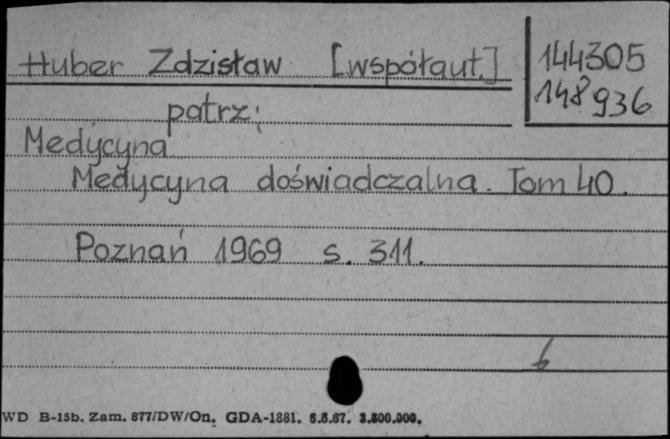 Huber Zdzisław [współaut.] 144305
148936
patrz:
Medycyna
Medycyna doświadczalna. Tom 40.
Poznań 1969 s. 311.
b
WD B-15b. Zam. 877/DW/On. GDA-1881. 6.6.67. 3.800.000.